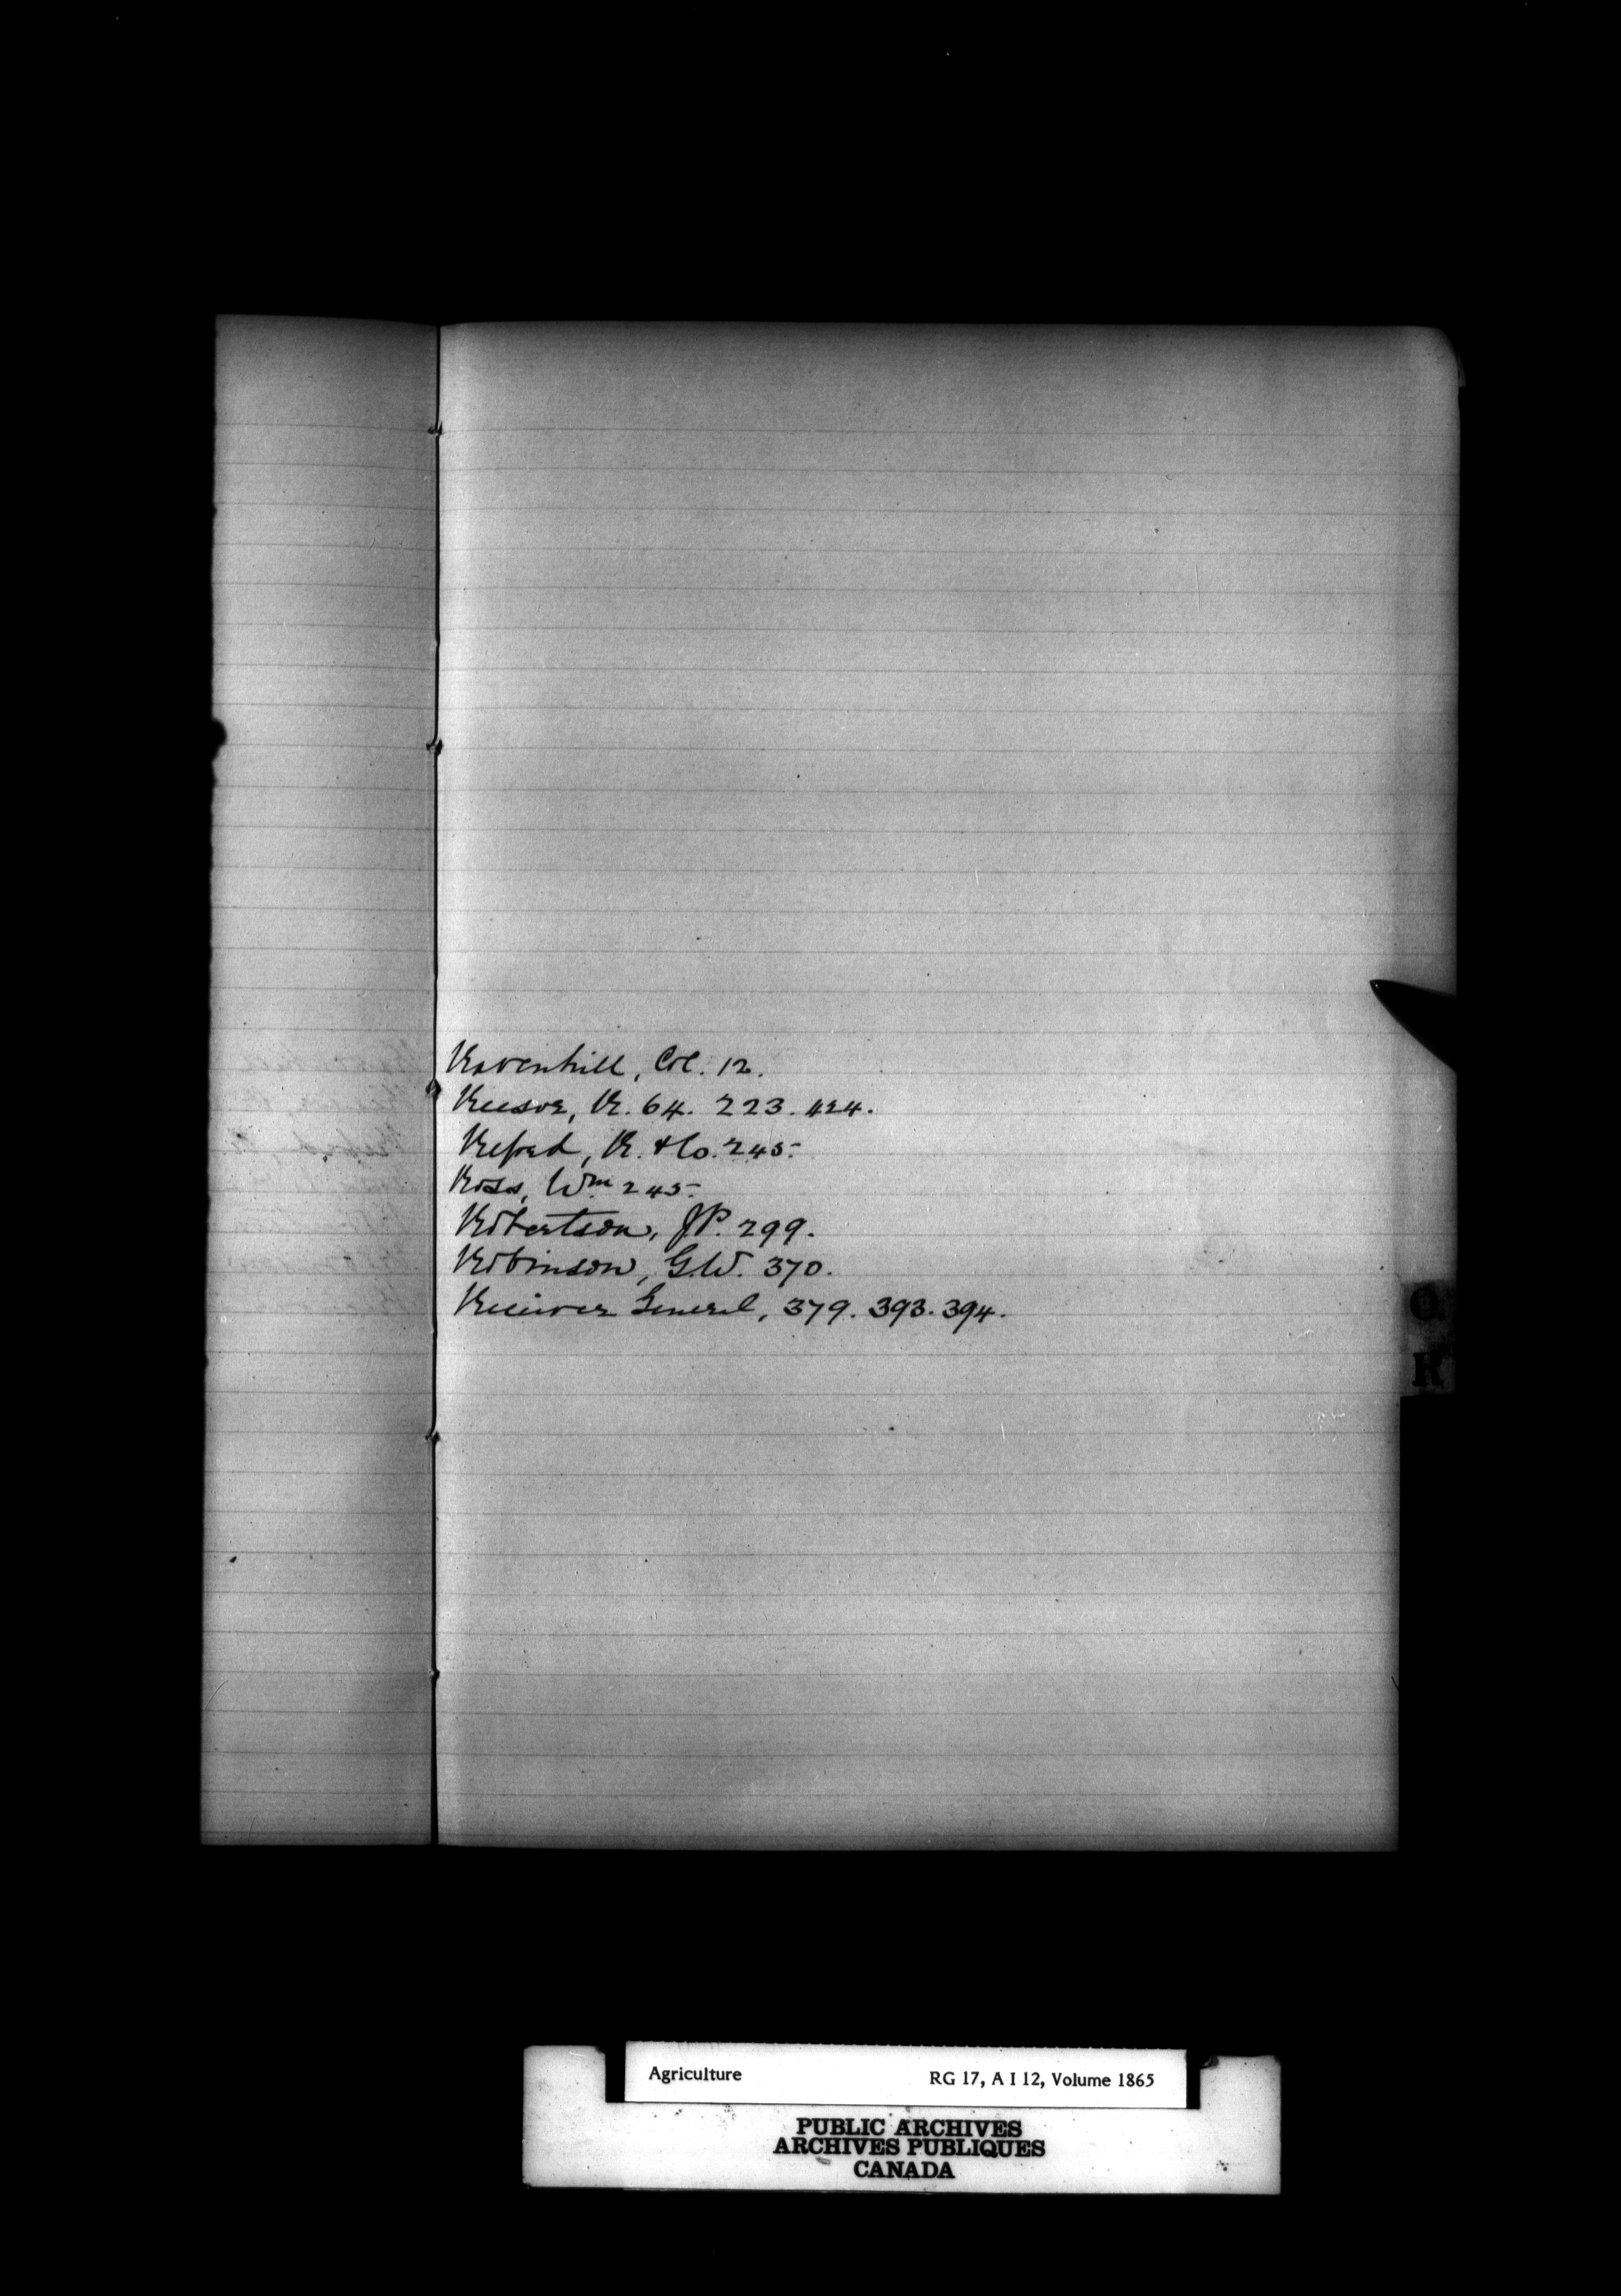 Ravenhill, Col. 12.
Reesor, R. 64. 223. 424.
Reford, R. & Co. 245.
Ross, Wm 245.
Robertson, J.P. 299.
Robinson, G.W. 370.
Receiver General, 379. 393. 394.
Q
R
Agriculture RG 17, A I 12, Volume 1865
PUBLIC ARCHIVES
ARCHIVES PUBLIQUES
CANADA